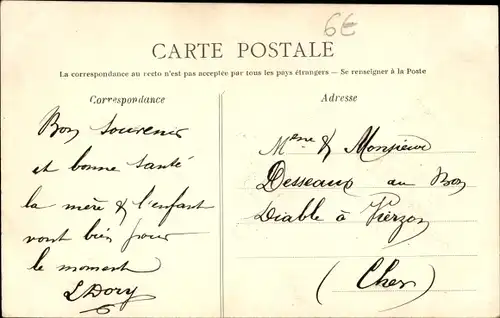 6€
CARTE POSTALE
La correspondance au recto n'est pas acceptée par tous les pays étrangers — Se renseigner à la Poste
Correspondance
Bon souvenir
et bonne santé
la mère & l'enfant
vont bien pour
le moment
L Dory
Adresse
Mme & Monsieur
Desseaux au Bon
Diable à Vierzon
(Cher)